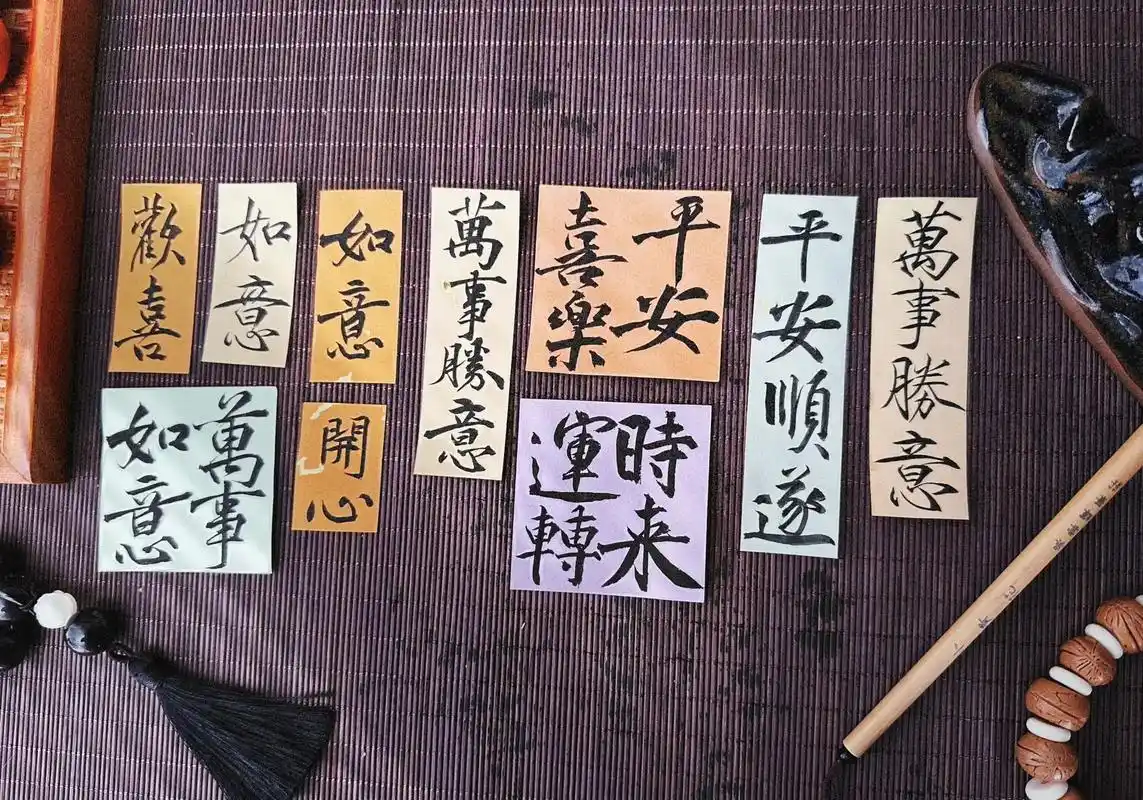 歡喜
如意
如意
萬事勝意
平安
喜樂
平安順遂
萬事勝意
萬事
如意
開心
時来
運轉